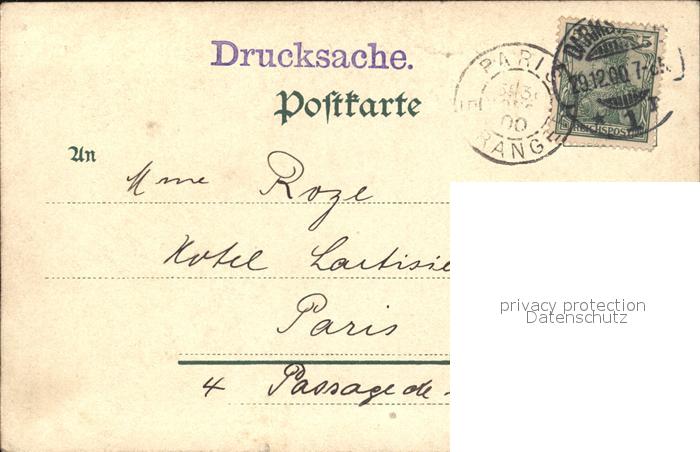 Drucksache.
Postkarte
An
Mme Roze
Hotel
Paris
4 Passage de
PARIS
00
ETRANGER
DARMS
29.12.00. 7-8
* 1
5
REICHSPOST
privacy protection
Datenschutz